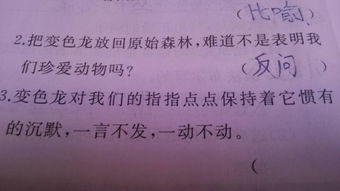 （比喻）
2.把变色龙放回原始森林，难道不是表明我
们珍爱动物吗？（反问）
3.变色龙对我们的指指点点保持着它惯有
的沉默，一言不发，一动不动。
（